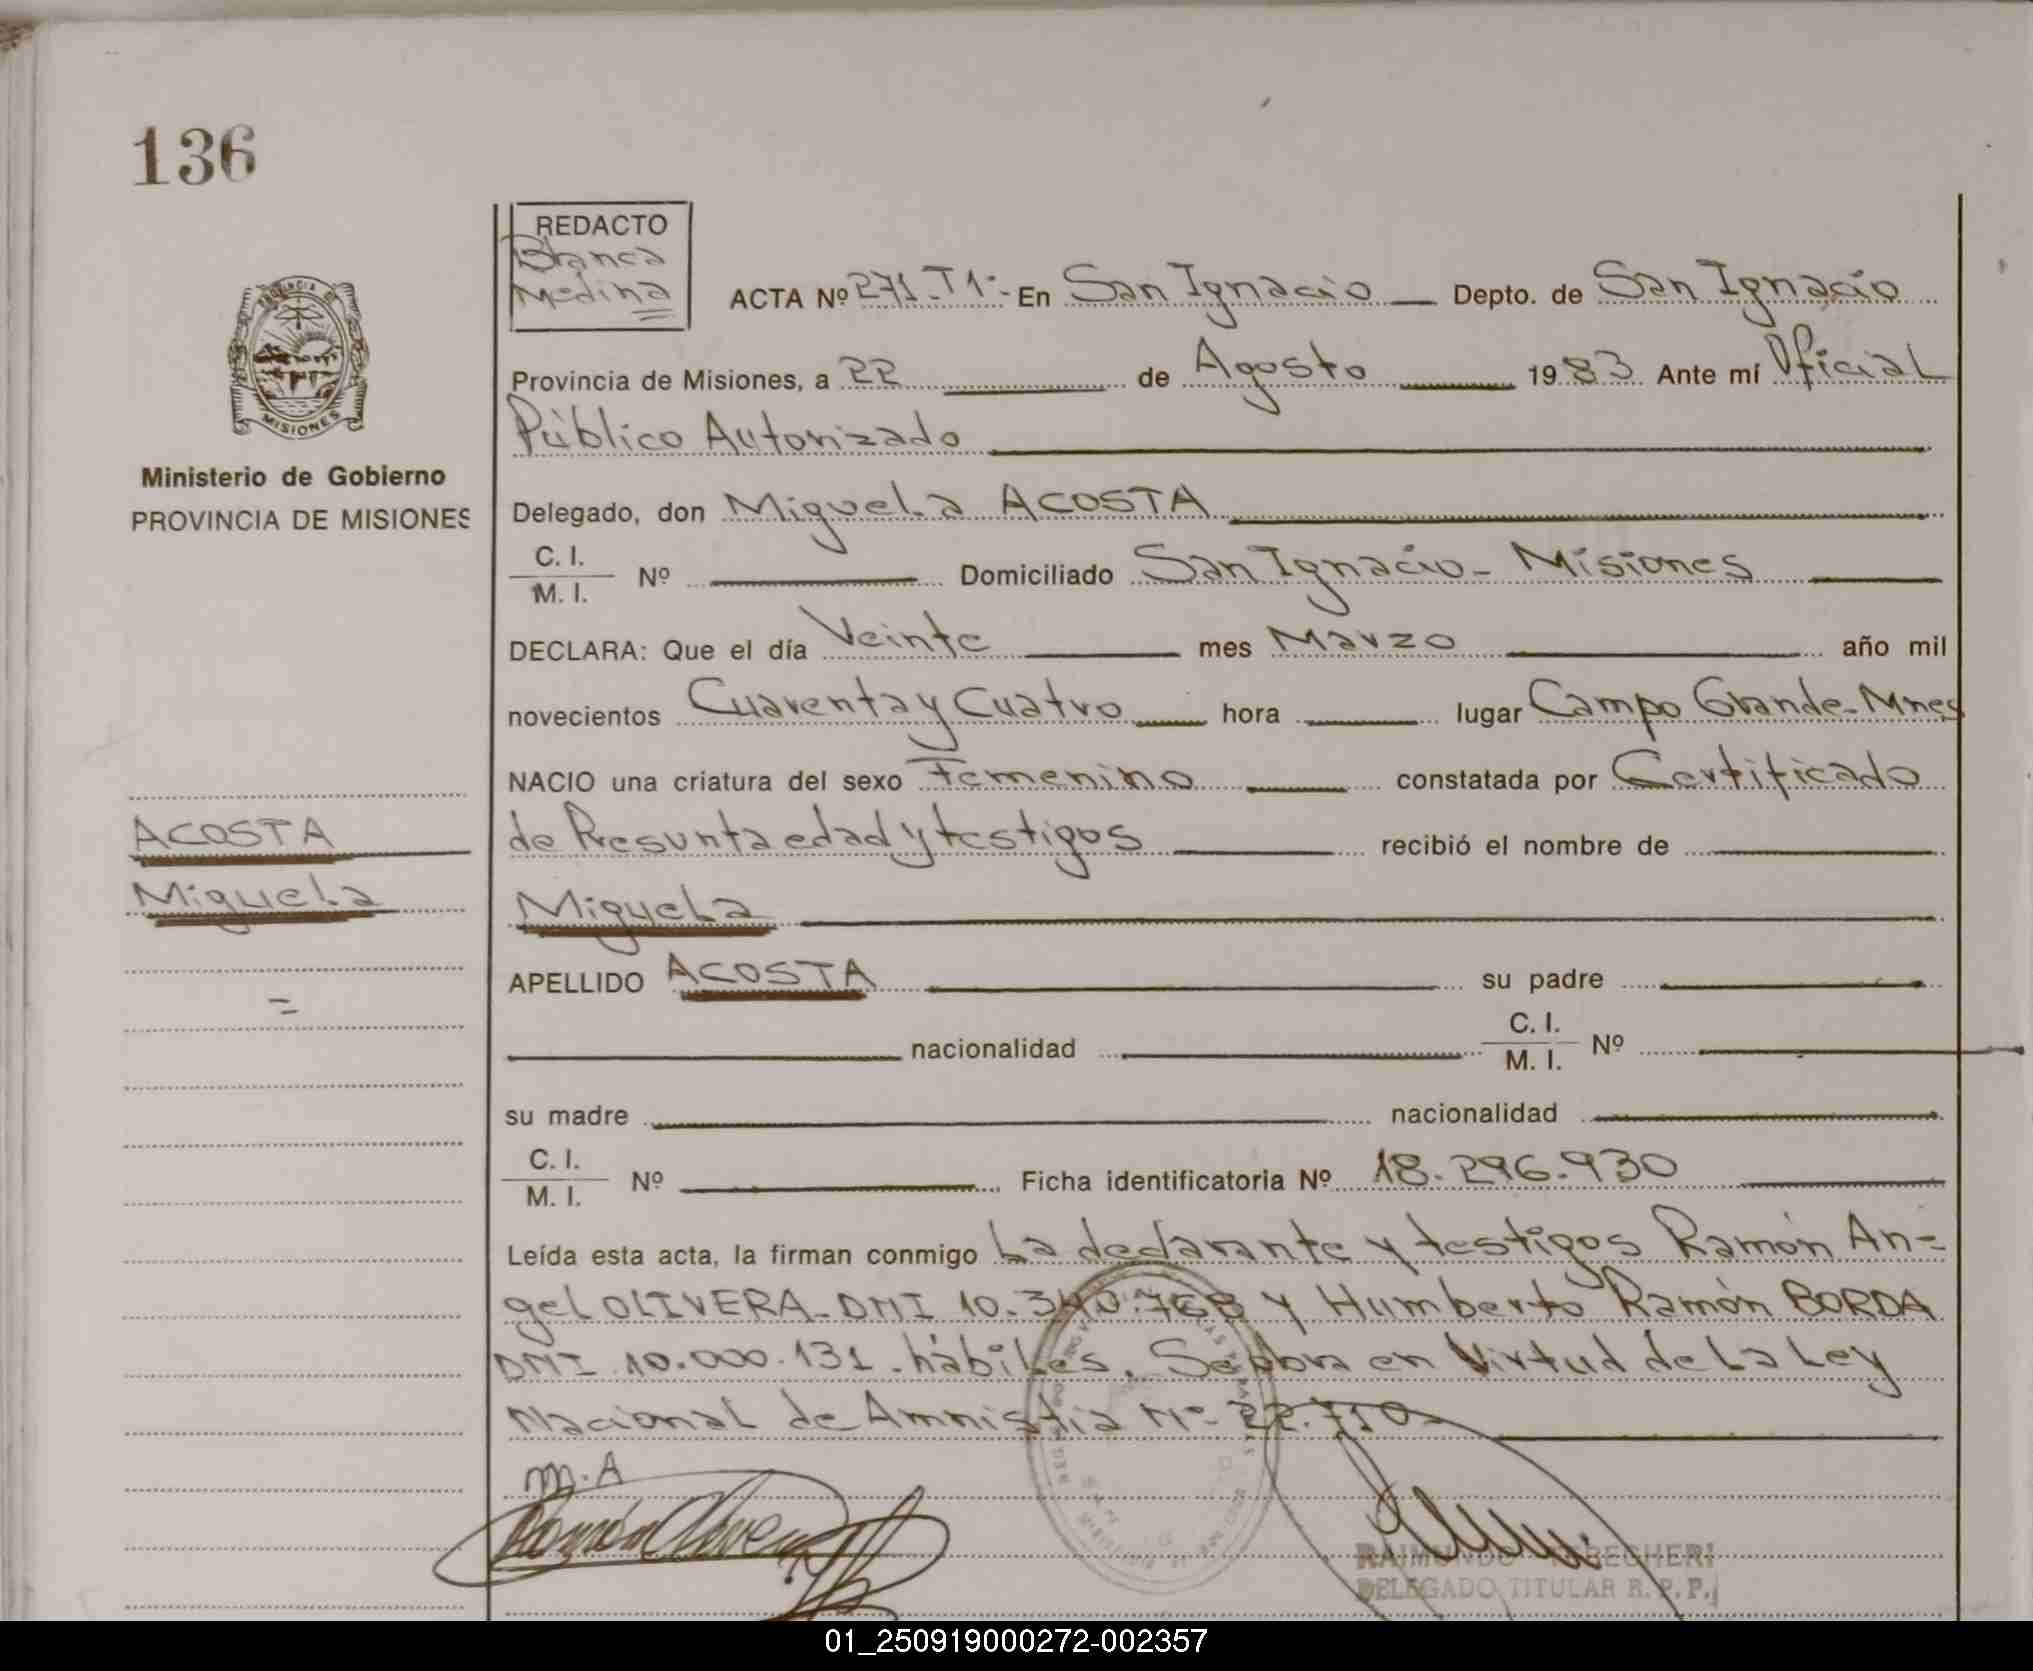 136
REDACTO
Blanca
Medina
PROVINCIA DE
MISIONES
Ministerio de Gobierno
PROVINCIA DE MISIONES
ACTA Nº 271-T1º- En San Ignacio Depto. de San Ignacio
Provincia de Misiones, a 22 de Agosto 1983 Ante mí Oficial
Público Autorizado
Delegado, don Miguela ACOSTA
C. I.
M. I. Nº Domiciliado San Ignacio - Misiones
DECLARA: Que el día Veinte mes Marzo año mil
novecientos Cuarenta y Cuatro hora lugar Campo Grande - Mnes
NACIO una criatura del sexo Femenino constatada por Certificado
de Presunta edad y testigos recibió el nombre de
ACOSTA
Miguela
=
Miguela
APELLIDO ACOSTA su padre
nacionalidad C. I.
M. I. Nº
su madre nacionalidad
C. I.
M. I. Nº Ficha identificatoria Nº 18.296.930
Leída esta acta, la firman conmigo La declarante y testigos Ramón An=
gel OLIVERA - DNI 10.340.768 y Humberto Ramón BORDA
DNI 10.000.131 - hábiles. Se labra en Virtud de La Ley
Nacional de Amnistia Nº 22.710-
M.A
Ramón Olivera
RAIMUNDO
DELEGADO TITULAR R. P. P.
01_250919000272-002357